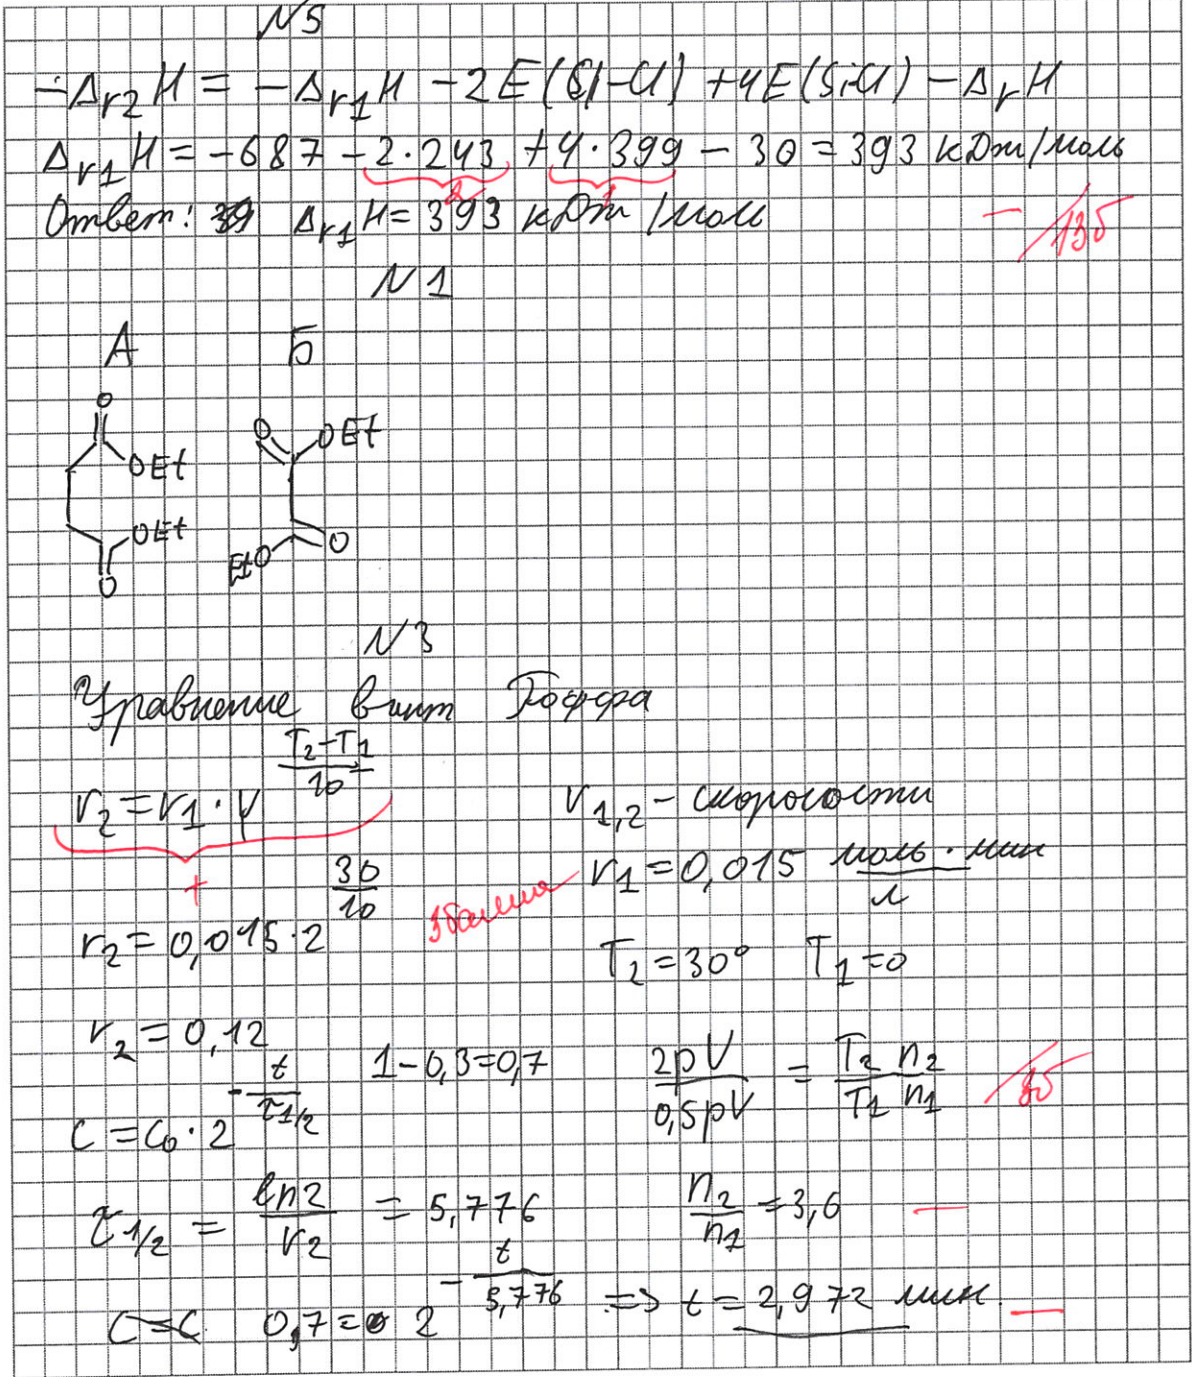 N5
-Δr2H = -Δr1H - 2E(Cl-Cl) + 4E(Si-Cl) - ΔrH
Δr1H = -687 - 2·243 + 4·399 - 30 = 393 кДж/моль
2 1
Ответ: Δr1H = 393 кДж/моль
— /13б
N1
А Б
O
O OEt
OEt
OEt
O
EtO
O
N3
Уравнение Вант Гоффа
r₂ = r₁·γ^((T₂-T₁)/10)
r₁,₂ - скоросости
+
r₁ = 0,015 моль·мин/л
3 балла
r₂ = 0,015·2^(30/10)
T₂ = 30° T₁ = 0
r₂ = 0,12
1-0,3=0,7
2pV/0,5pV = T₂ n₂/T₁ n₁
/8б
C = C₀·2^(-t/τ1/2)
τ1/2 = ln2/r₂ = 5,776
n₂/n₁ = 3,6 —
C=C 0,7 = 2^(-t/5,776) => t = 2,972 мин. —